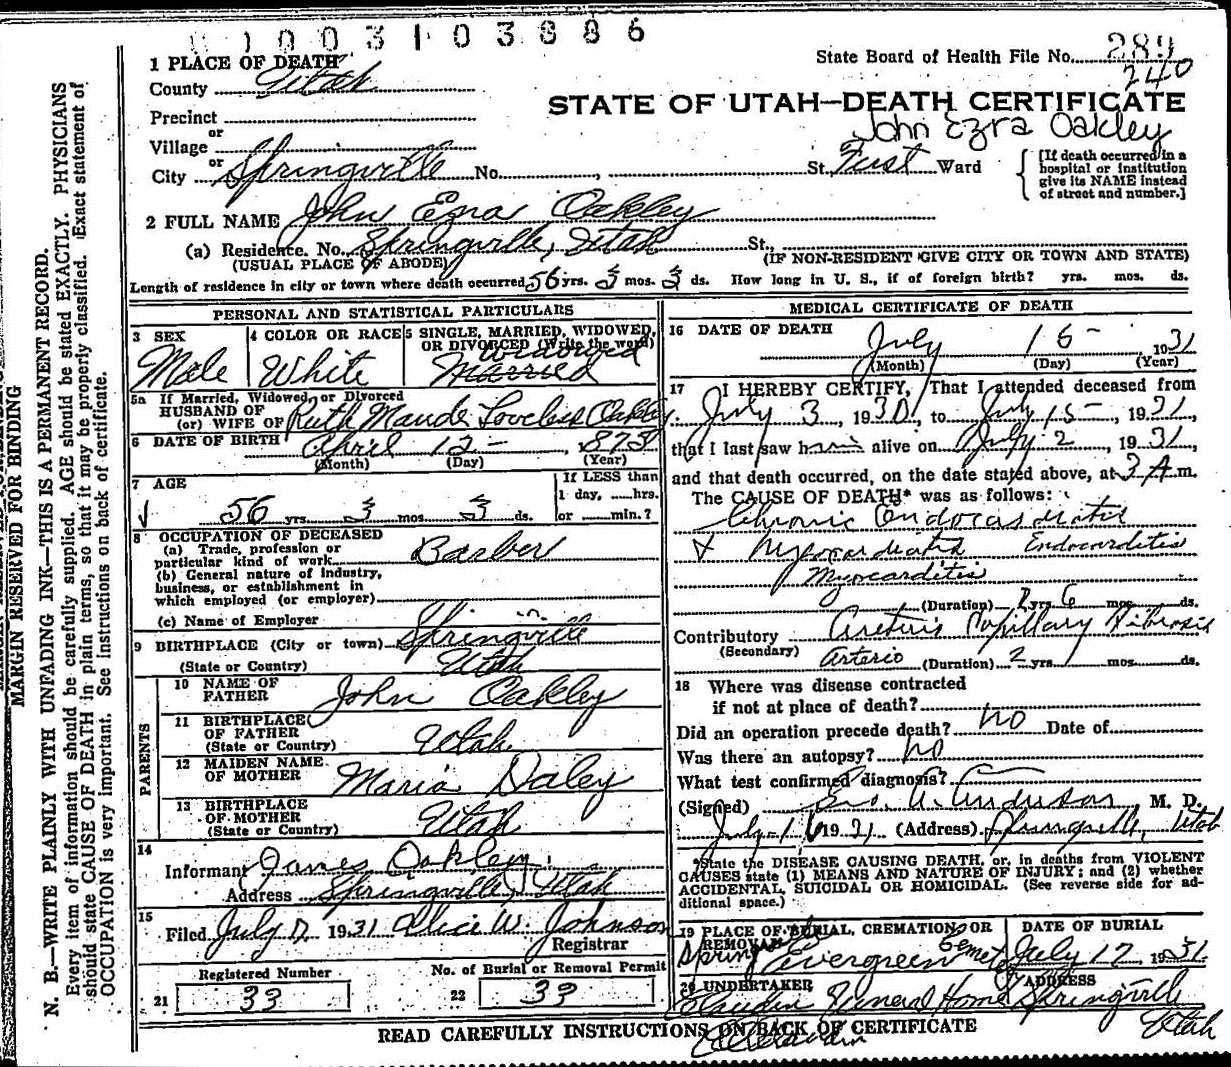 1003103686
State Board of Health File No. 289
240
1 PLACE OF DEATH
County Utah
STATE OF UTAH—DEATH CERTIFICATE
John Ezra Oakley
Precinct
or
Village
or
City Springville No. , St. First Ward
[If death occurred in a hospital or institution give its NAME instead of street and number.]
2 FULL NAME John Ezra Oakley
(a) Residence. No. Springville, Utah St.,
(USUAL PLACE OF ABODE) (IF NON-RESIDENT GIVE CITY OR TOWN AND STATE)
Length of residence in city or town where death occurred 56 yrs. 3 mos. 3 ds. How long in U. S., if of foreign birth? yrs. mos. ds.
PERSONAL AND STATISTICAL PARTICULARS
3 SEX
Male
4 COLOR OR RACE
White
5 SINGLE, MARRIED, WIDOWED,
OR DIVORCED (Write the word)
Widowed
Married
5a If Married, Widowed, or Divorced
HUSBAND OF
(or) WIFE OF Ruth Maude Loveless Oakley
6 DATE OF BIRTH April 12 — , 873
(Month) (Day) (Year)
7 AGE
56 yrs. 3 mos. 3 ds.
If LESS than
1 day, hrs.
or min.?
8 OCCUPATION OF DECEASED
(a) Trade, profession or
particular kind of work Barber
(b) General nature of industry,
business, or establishment in
which employed (or employer)
(c) Name of Employer
9 BIRTHPLACE (City or town) Springville
(State or Country) Utah
PARENTS
10 NAME OF
FATHER John Oakley
11 BIRTHPLACE
OF FATHER
(State or Country) Utah
12 MAIDEN NAME
OF MOTHER Maria Daley
13 BIRTHPLACE
OF MOTHER
(State or Country) Utah
14
Informant James Oakley
Address Springville, Utah
15
Filed July 17 1931 Alice W. Johnson
Registrar
Registered Number
21 33
No. of Burial or Removal Permit
22 39
MEDICAL CERTIFICATE OF DEATH
16 DATE OF DEATH
July 15 1931
(Month) (Day) (Year)
17 I HEREBY CERTIFY, That I attended deceased from
July 3, 1930, to July 15, 1931,
that I last saw him alive on July 2, 1931,
and that death occurred, on the date stated above, at 3 A. m.
The CAUSE OF DEATH* was as follows:
Chronic Endocardiatis
& Myocardiatis Endocarditis
Myocarditis
(Duration) 2 yrs. 6 mos. ds.
Contributory Capillary Fibrosis
(Secondary) Arterio (Duration) 2 yrs. mos. ds.
18 Where was disease contracted
if not at place of death?
Did an operation precede death? no Date of
Was there an autopsy? no
What test confirmed diagnosis?
(Signed) Geo. A. Anderson, M. D.
July 16 1931 (Address) Springville, Utah
*State the DISEASE CAUSING DEATH, or, in deaths from VIOLENT
CAUSES state (1) MEANS AND NATURE OF INJURY; and (2) whether
ACCIDENTAL, SUICIDAL OR HOMICIDAL. (See reverse side for ad-
ditional space.)
19 PLACE OF BURIAL, CREMATION, OR
REMOVAL
Spring Evergreen Cemetery
DATE OF BURIAL
July 17, 1931
20 UNDERTAKER
Claudin Funeral Home
ADDRESS
Springville
Utah
READ CAREFULLY INSTRUCTIONS ON BACK OF CERTIFICATE
MARGIN RESERVED FOR BINDING
N. B.—WRITE PLAINLY WITH UNFADING INK—THIS IS A PERMANENT RECORD.
Every item of information should be carefully supplied. AGE should be stated EXACTLY. PHYSICIANS
should state CAUSE OF DEATH in plain terms, so that it may be properly classified. Exact statement of
OCCUPATION is very important. See instructions on back of certificate.